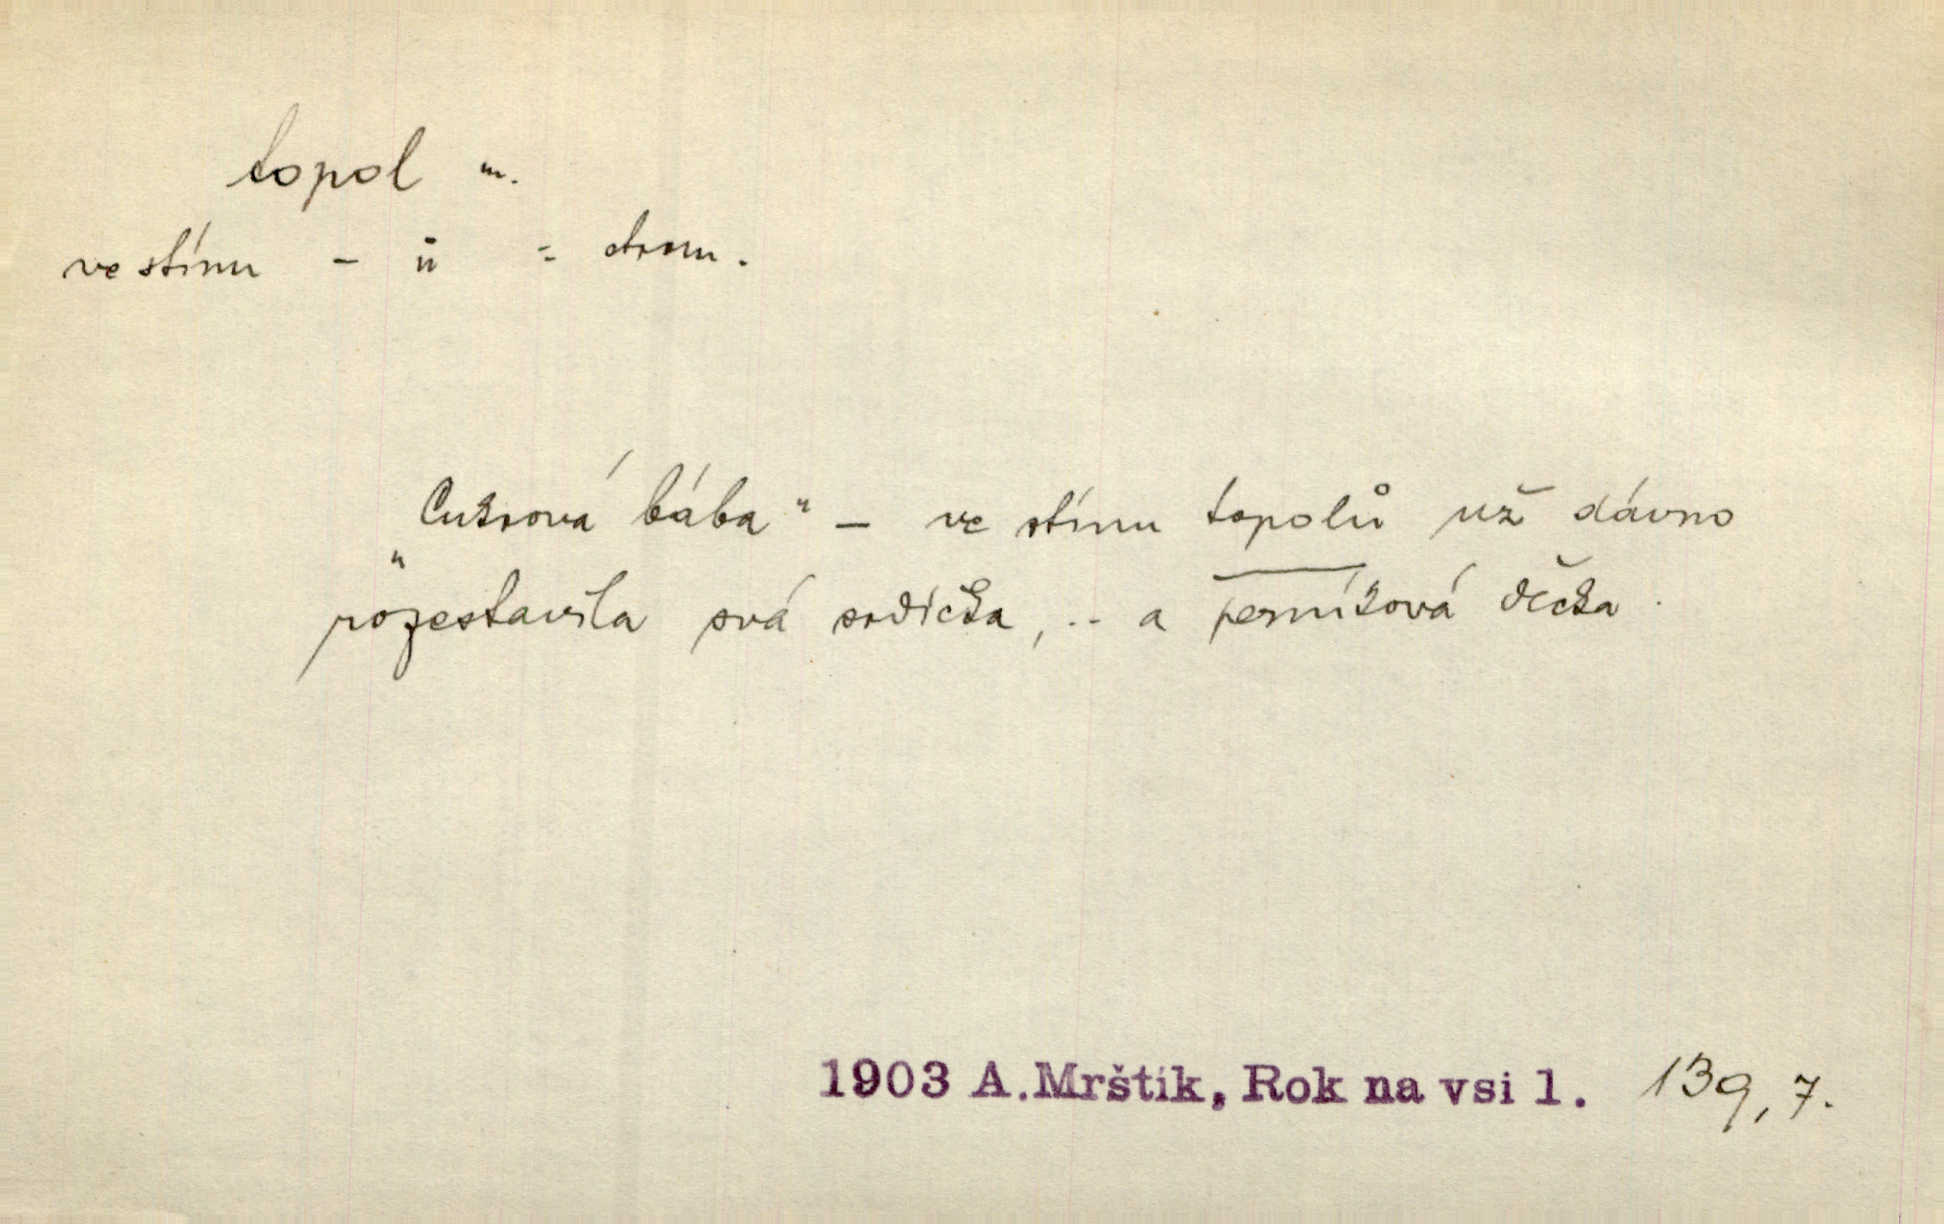 topol m.
ve stínu - ů = strom.
„Cukrová bába" - ve stínu topolů už dávno
rozestavila svá srdíčka, .. a perníková děcka.
1903 A.Mrštík, Rok na vsi 1. 139, 7.